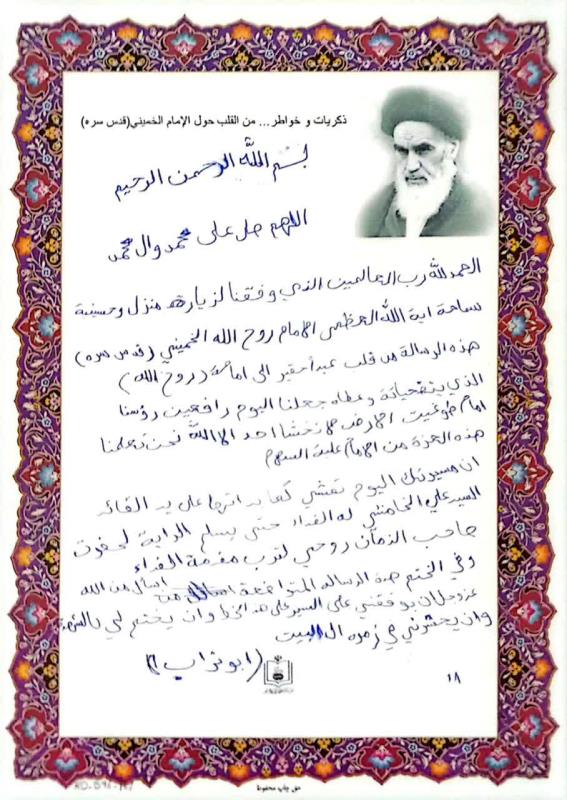 ذكريات و خواطر... من القلب حول الإمام الخميني(قدس سره)
بسم الله الرحمن الرحيم
اللهم صل على محمد وال محمد
الحمد لله رب العالمين الذي وفقنا لزيارة منزل وحسينية
سماحة اية الله العظمى الامام روح الله الخميني (قدس سره)
هذه الرسالة من قلب عبد حقير الى امامة (روح الله)
الذي بتضحياتة وعطاه جعلنا اليوم رافعين رؤسنا
امام طواغيت الارض لا نخشا احد الا الله نحن تعلمنا
هذه العزة من الامام علية السلام
ان مسيرتك اليوم تمشي كما بداتها على يد القائد
السيد علي الخامنئي له الفداء حتى يسلم الراية لحضرت
صاحب الزمان روحي لترب مقدمة الفداء
وفي الختم هذة الرساله المتواضعة اسال من الله
عزوجل ان يوفقني على السير على هذ الخط وان يختم لي بالشهادة
وان يحشرني في زمرة ال البيت
(ابو تراب)
١٨
حق چاپ محفوظ